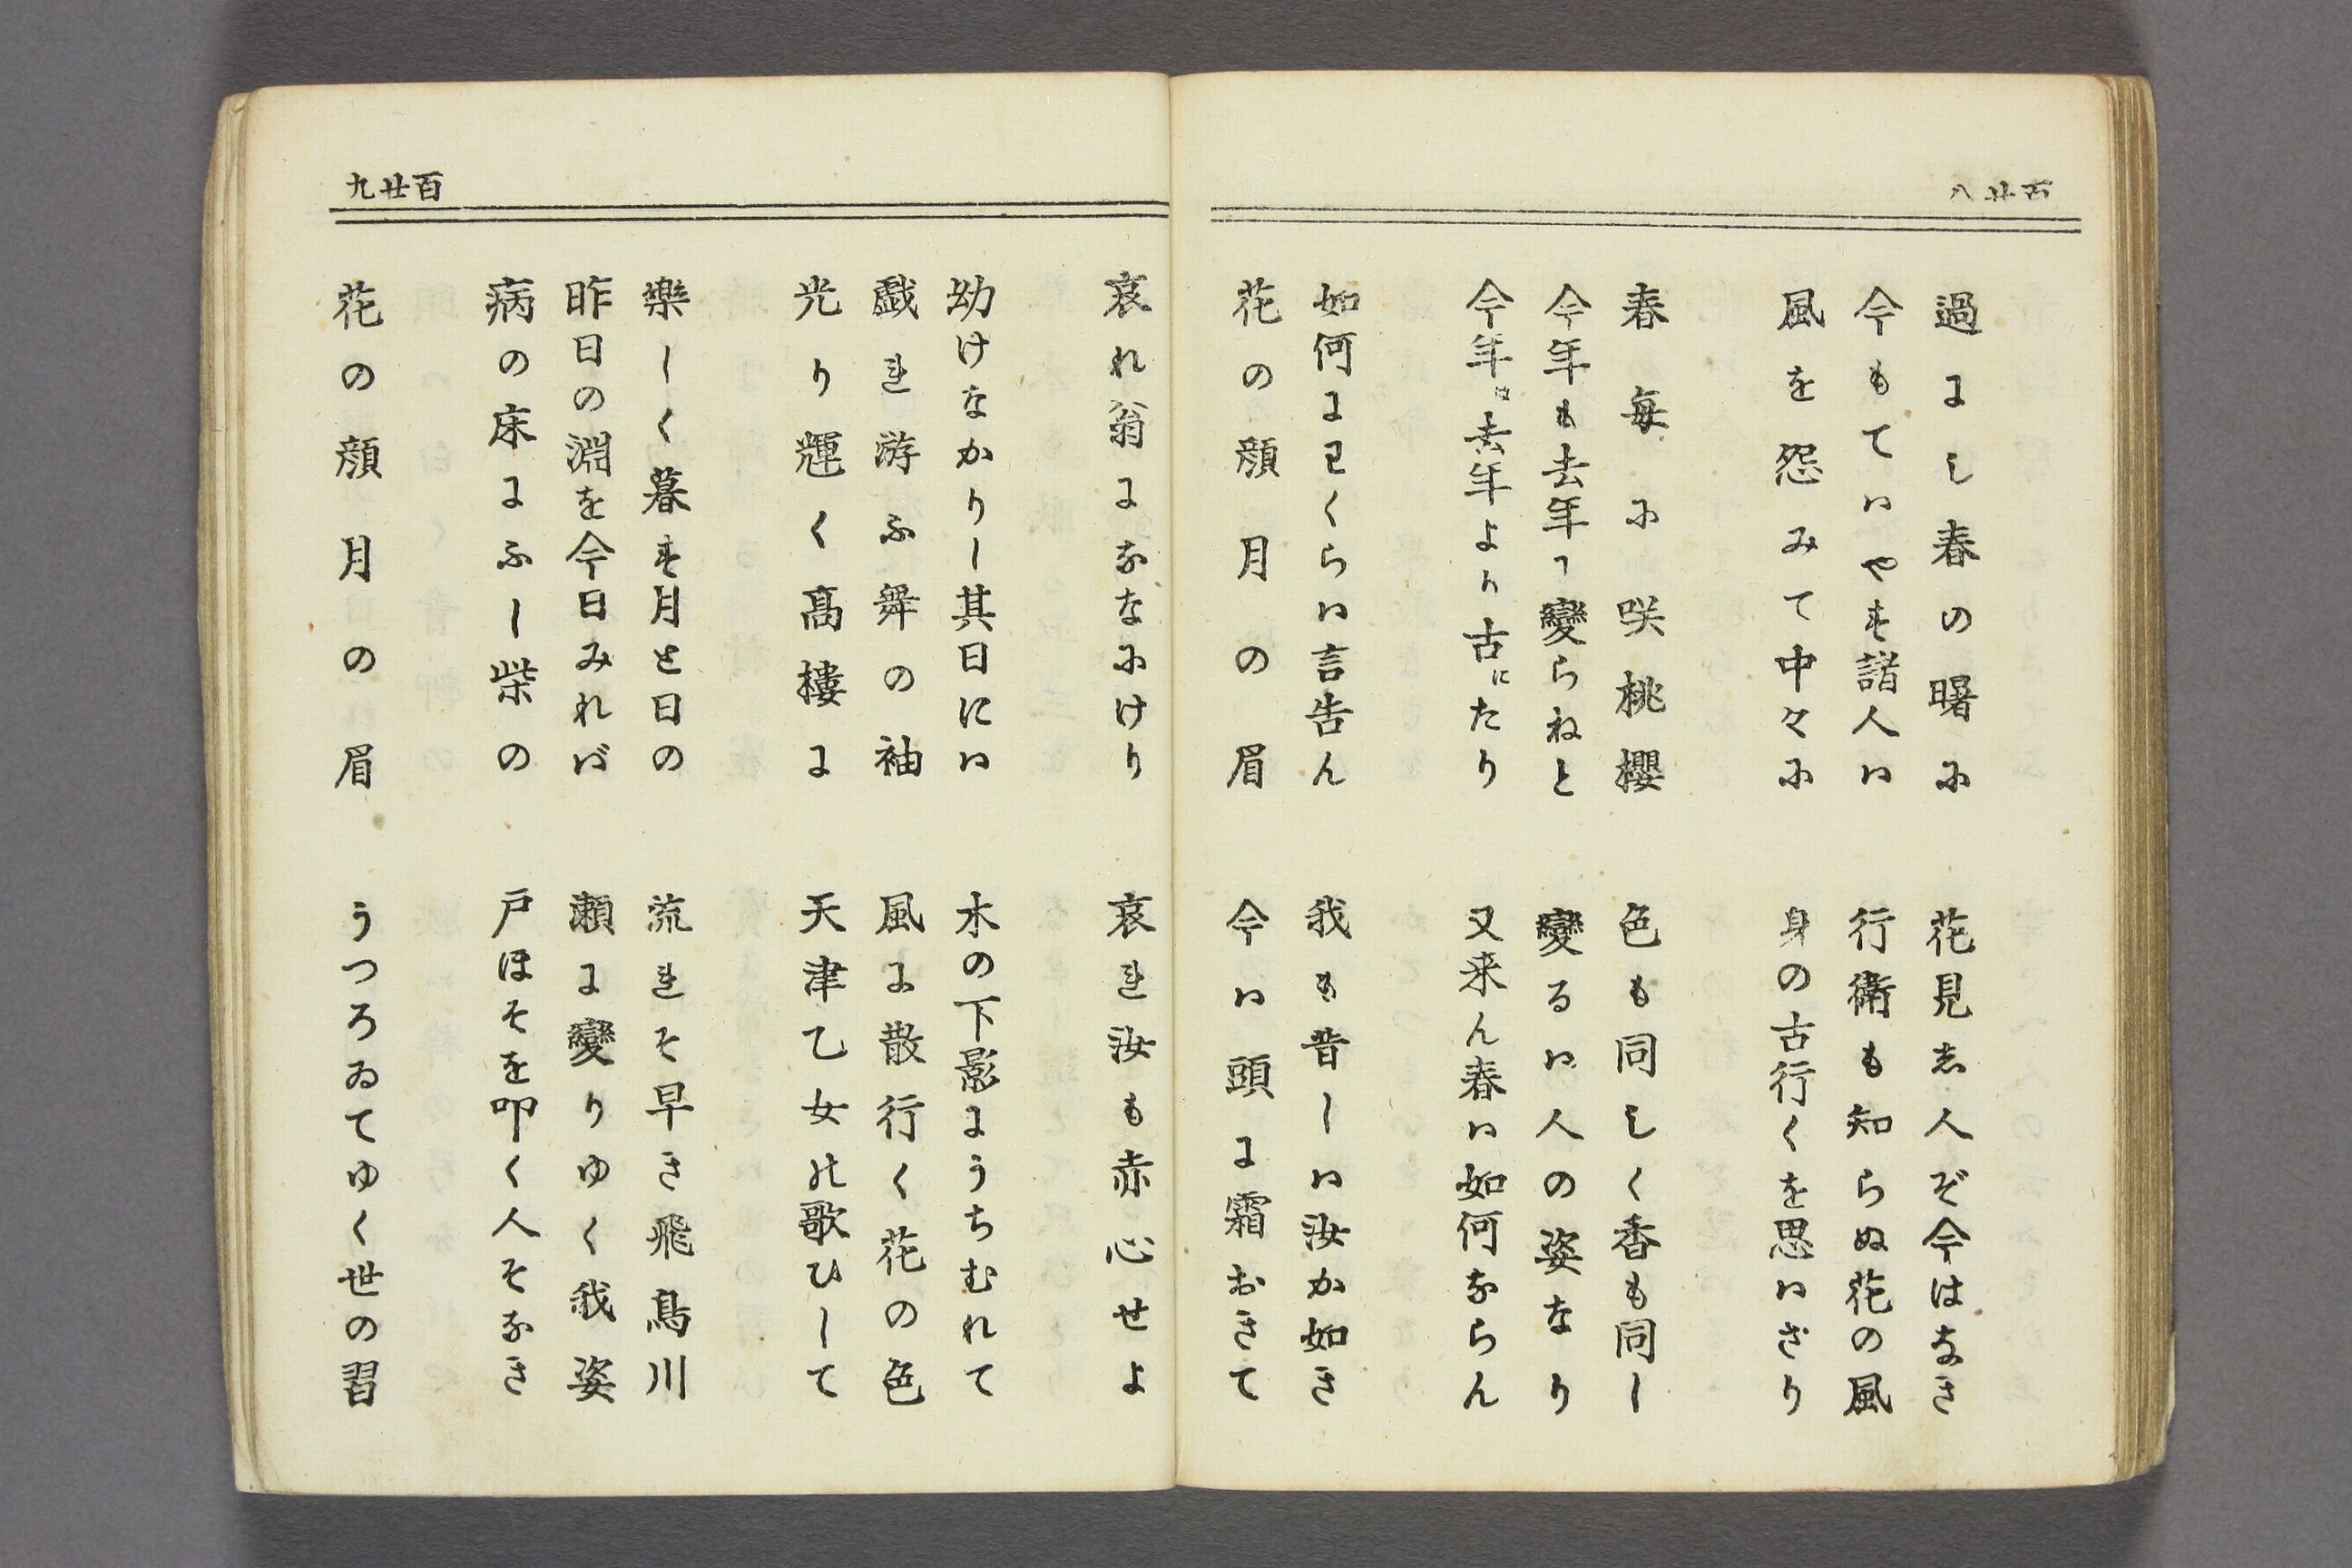 百廿八
過にし春の曙に　花見し人ぞ今はなき
今もてはやす諸人は　行衛も知らぬ花の風
風を怨みて中々に　身の古行くを思はざり
春毎に咲桃櫻　色も同しく香も同し
今年も去年ヿ變らねと　變るは人の姿なり
今年は去年より古にたり　又来ん春は如何ならん
如何にわくらは言告ん　我も昔しは汝か如き
花の顔月の眉　今は頭に霜おきて
百廿九
哀れ翁にななにけり　哀れ汝も赤心せよ
幼けなかりし其日には　木の下影にうちむれて
戯れ游ふ舞の袖　風に散行く花の色
光り輝く高樓に　天津乙女の歌ひして
樂しく暮す月と日の　流れそ早き飛鳥川
昨日の淵を今日みれば　瀬に變りゆく我姿
病の床にふし柴の　戸ほそを叩く人そなき
花の顔月の眉　うつろゐてゆく世の習